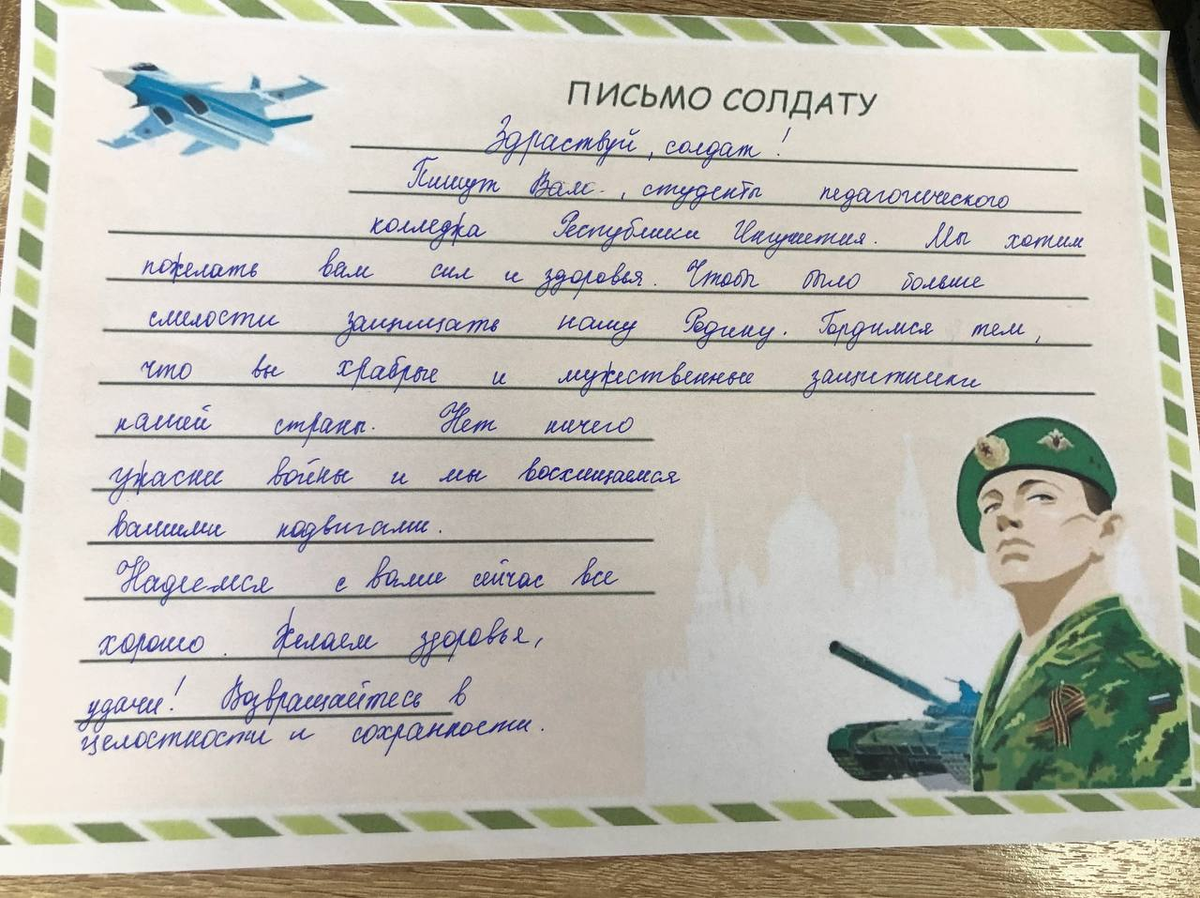 ПИСЬМО СОЛДАТУ
Здраствуй, солдат!
Пишут Вам, студенты педагогического
колледжа Республики Ингушетия. Мы хотим
пожелать вам сил и здоровья. Чтобы было больше
смелости защищать нашу Родину. Гордимся тем,
что вы храбрые и мужественные защитники
нашей страны. Нет ничего
ужасни войны и мы восхищаемся
вашими подвигами.
Надеемся с вами сейчас все
хорошо. Желаем здоровья,
удачи! Возвращайтесь в
целостности и сохранности.